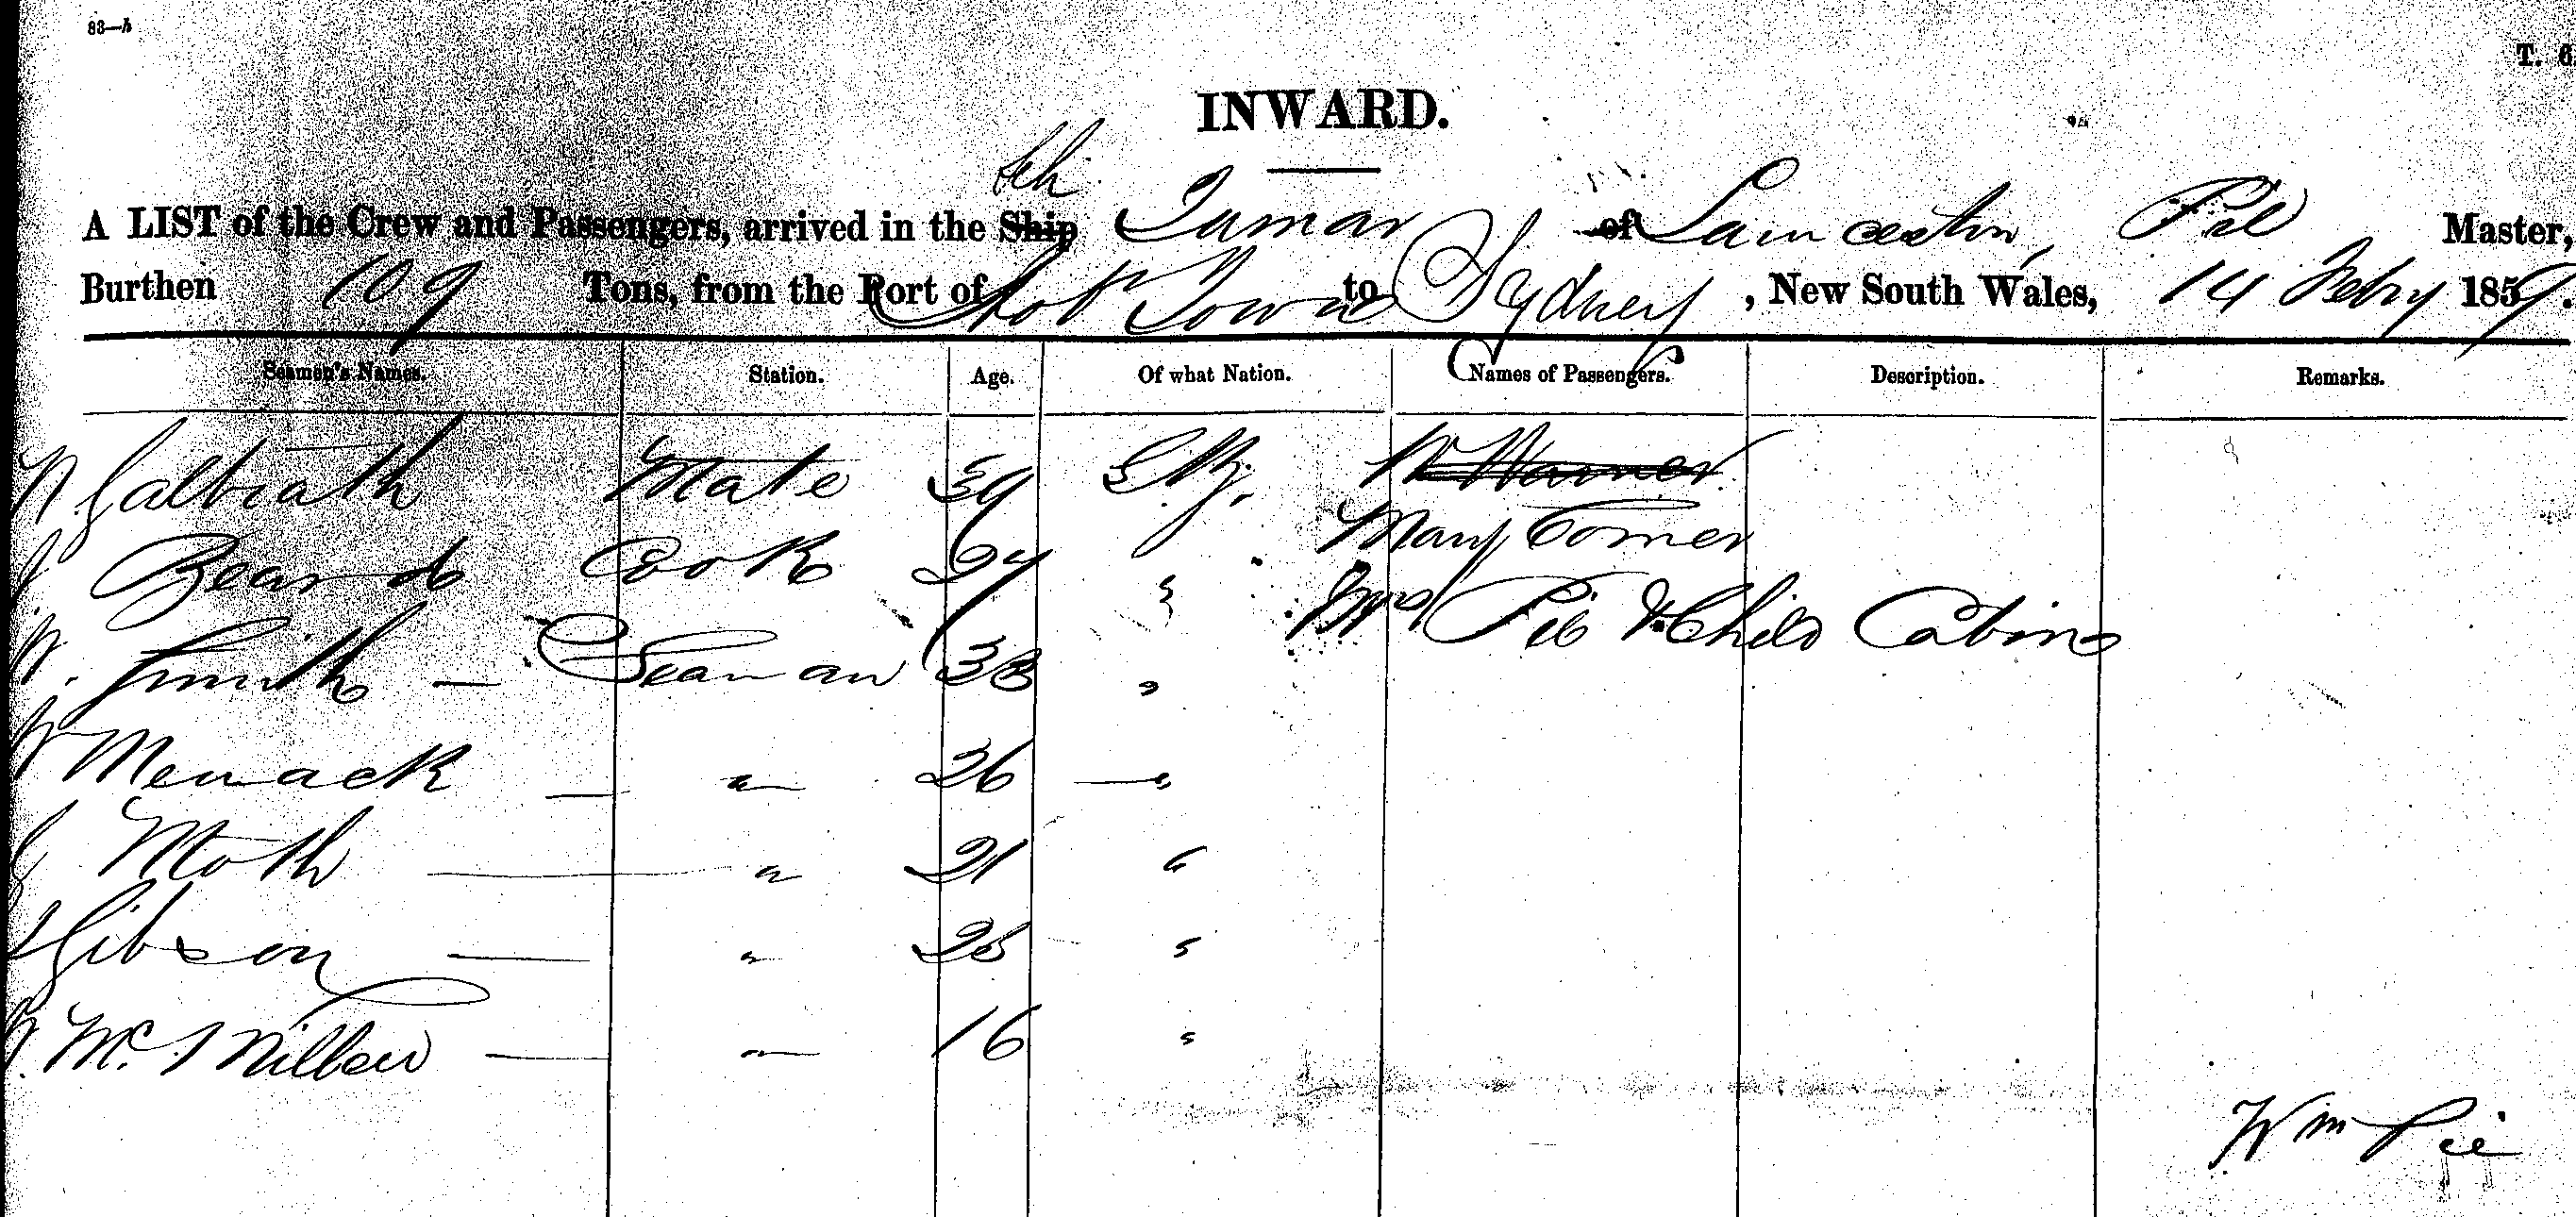 83—h
T. 6
INWARD.
Sch
A LIST of the Crew and Passengers, arrived in the Ship Tamar of Launceston, Master,
Burthen 109 Tons, from the Port of Hob Town to Sydney, New South Wales, 14 Febry 1859.
Seamen's Names. Station. Age. Of what Nation. Names of Passengers. Description. Remarks.
Galbraith Mate 39
Mary Tomer
Beard Cook 24 "
Mrs & Child Cabin
W. Smith — Seaman 38 "
W — " 26 — "
J Moth — " 21 "
Gibson — " "
W. McMillan — " 16 "
Wm